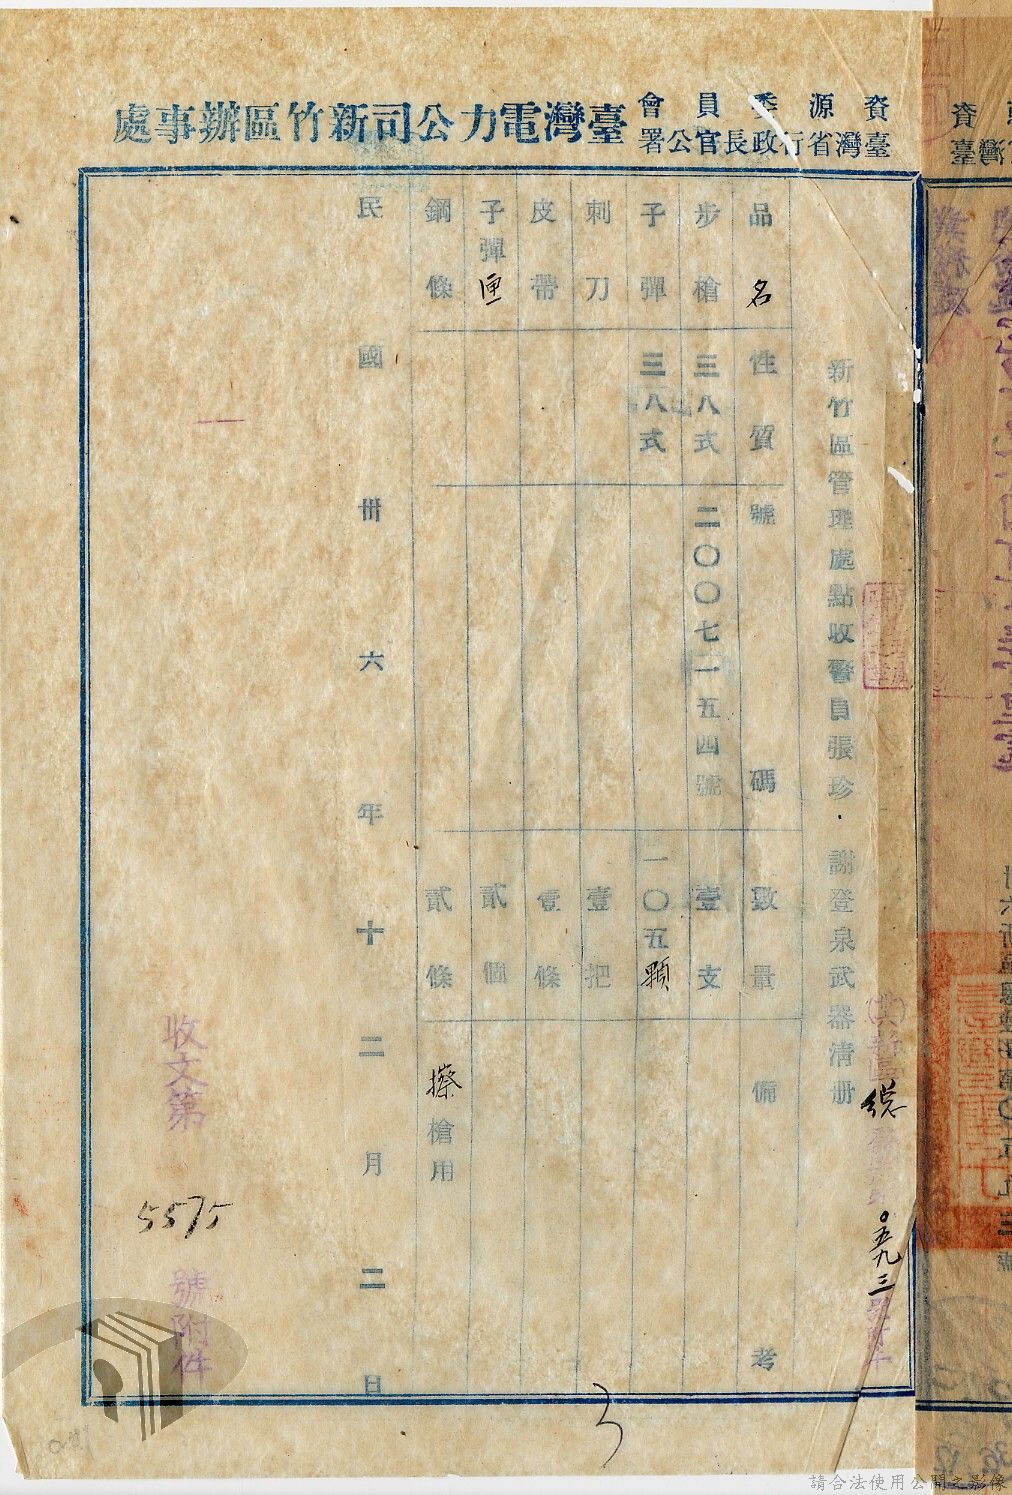 資源委員會
臺灣省行政長官公署
臺灣電力公司新竹區辦事處
新竹區管理處點收警員張珍．謝登泉武器清册
品名 性質 號碼 數量 備考
步槍 三八式 二〇〇七一五四號 壹支
子彈 三八式 一〇五顆
刺刀 壹把
皮帶 壹條
子彈匣 貳個
鋼條 貳條 擦槍用
民國卅六年十二月二日
收文第5575號附件
總
〇五九三
3
請合法使用公開之影像